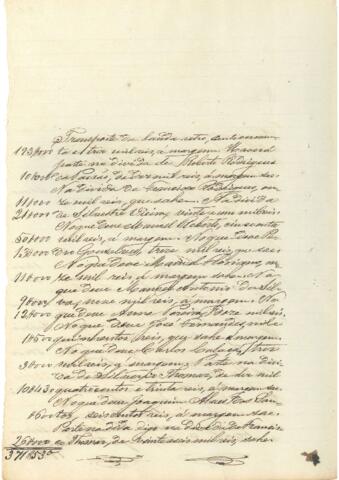 Transporte da lauda retro, cento e noven-
193$000 ta e tres mil reis, á margem
parte na divida de Roberto Rodrigues
10$000 da Paixão, de dez mil reis, á margem
Na divida de Francisco Rodrigues, on-
11$000 ze mil reis, que sahe. Na divida
21$000 de Silvestre Vieira, vinte e um mil reis.
No que deve Manoel Roberto, cincoenta
50$000 mil reis, á margem. No que deve Pe-
13$000 dro Gonçalves, treze mil reis, que sahe.
No que deve Manoel Rodrigues, on-
11$000 ze mil reis, á margem sahe. No
que deve Manoel Antonio da Sil-
9$000 va, nove mil reis, á margem. No
12$000 que deve Anna Pereira, doze mil reis.
No que deve José Fernandes, mil e
1$500 quinhentos reis, que sahe á margem.
No que deve Carlos tres
3$000 mil reis, á margem. Parte na divi-
da de Thomas, de dez mil
10$430 quatrocentos e trinta reis, á margem
No que deve Joaquim Alves dos San-
$600 tos, seiscentos reis, á margem sae
Parte na diva digo na divida de Francis-
26$000 co Thomas, de vinte e seis mil reis, sahe
371$530